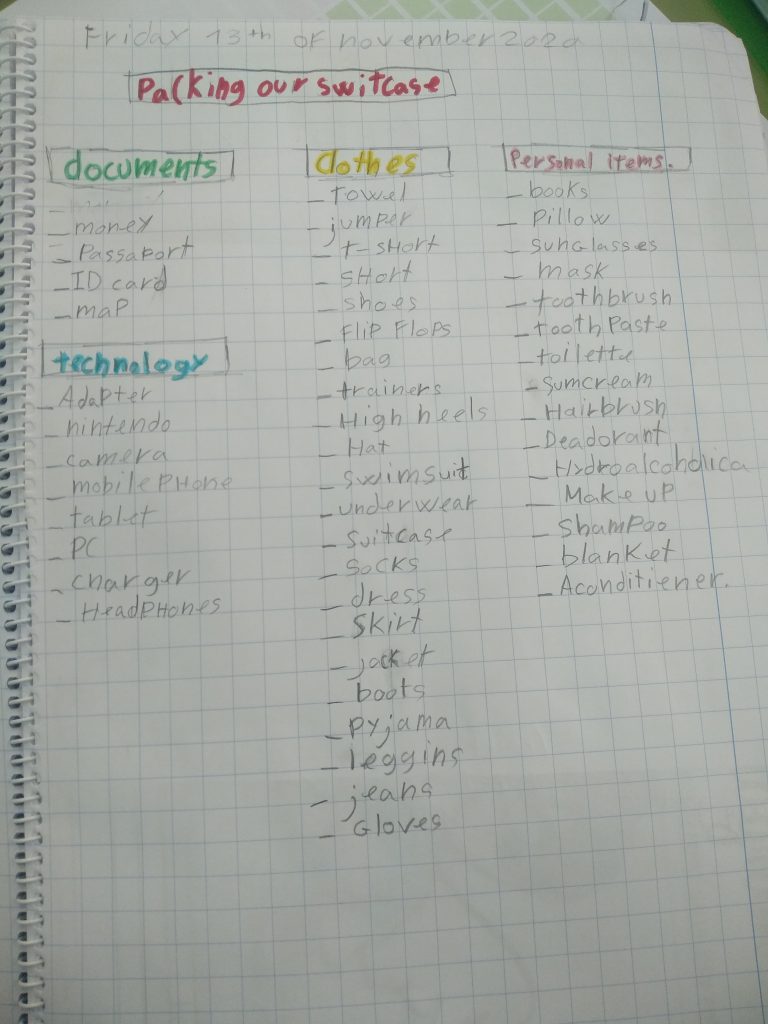 Friday 13th of november 2020
Packing our switcase
documents
_ money
_ Passaport
_ ID card
_ map
technology
_ Adapter
_ nintendo
_ camera
_ mobile PHone
_ tablet
_ PC
_ charger
_ HeadPHones
Clothes
_ Towel
_ jumper
_ t-sHort
_ sHort
_ shoes
_ Flip Flops
_ bag
_ trainers
_ High heels
_ Hat
_ swimsuit
_ underwear
_ suitcase
_ socks
_ dress
_ skirt
_ jacket
_ boots
_ pyjama
_ leggins
_ jeans
_ Gloves
Personal items.
_ books
_ Pillow
_ sunglasses
_ mask
_ toothbrush
_ toothPaste
_ toilette
_ sumcream
_ Hairbrush
_ Deadorant
_ Hydroalcoholica
_ Make up
_ ShamPoo
_ blanket
_ Aconditiener.